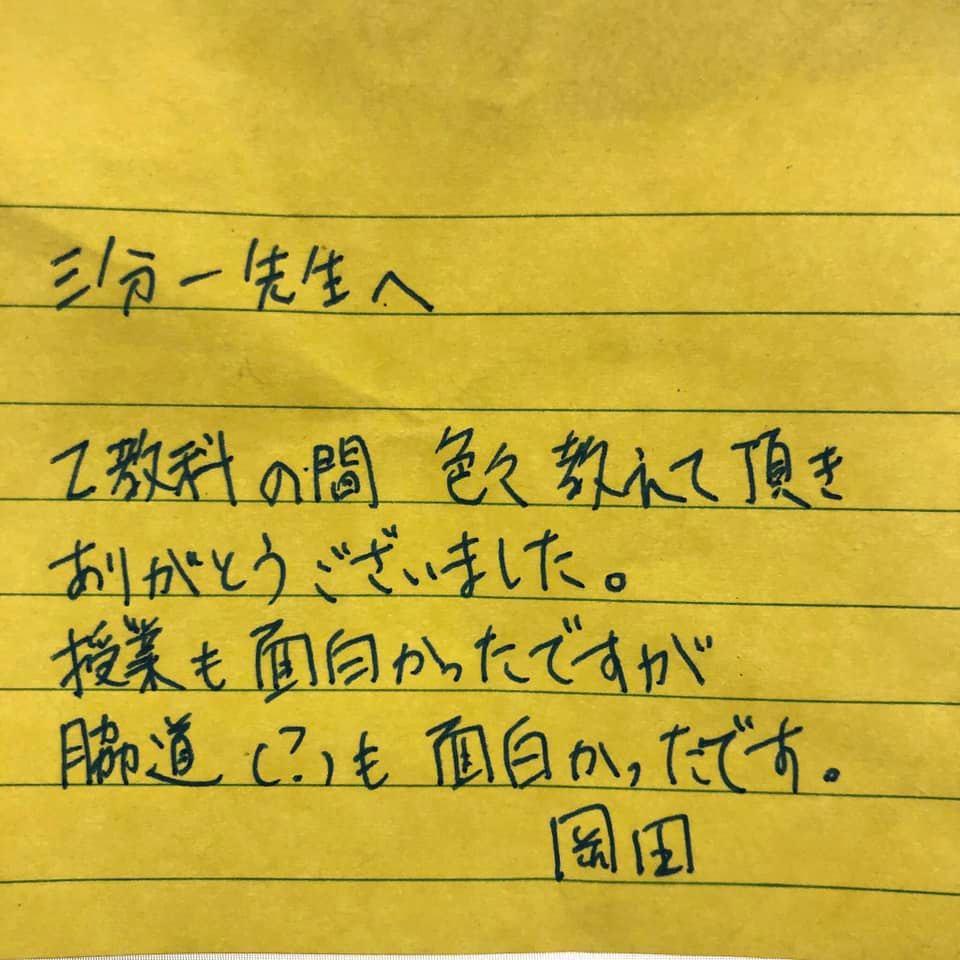 三分一先生へ
乙教科の間 色々教えて頂き
ありがとうございました。
授業も面白かったですが
脇道(?)も面白かったです。
岡田